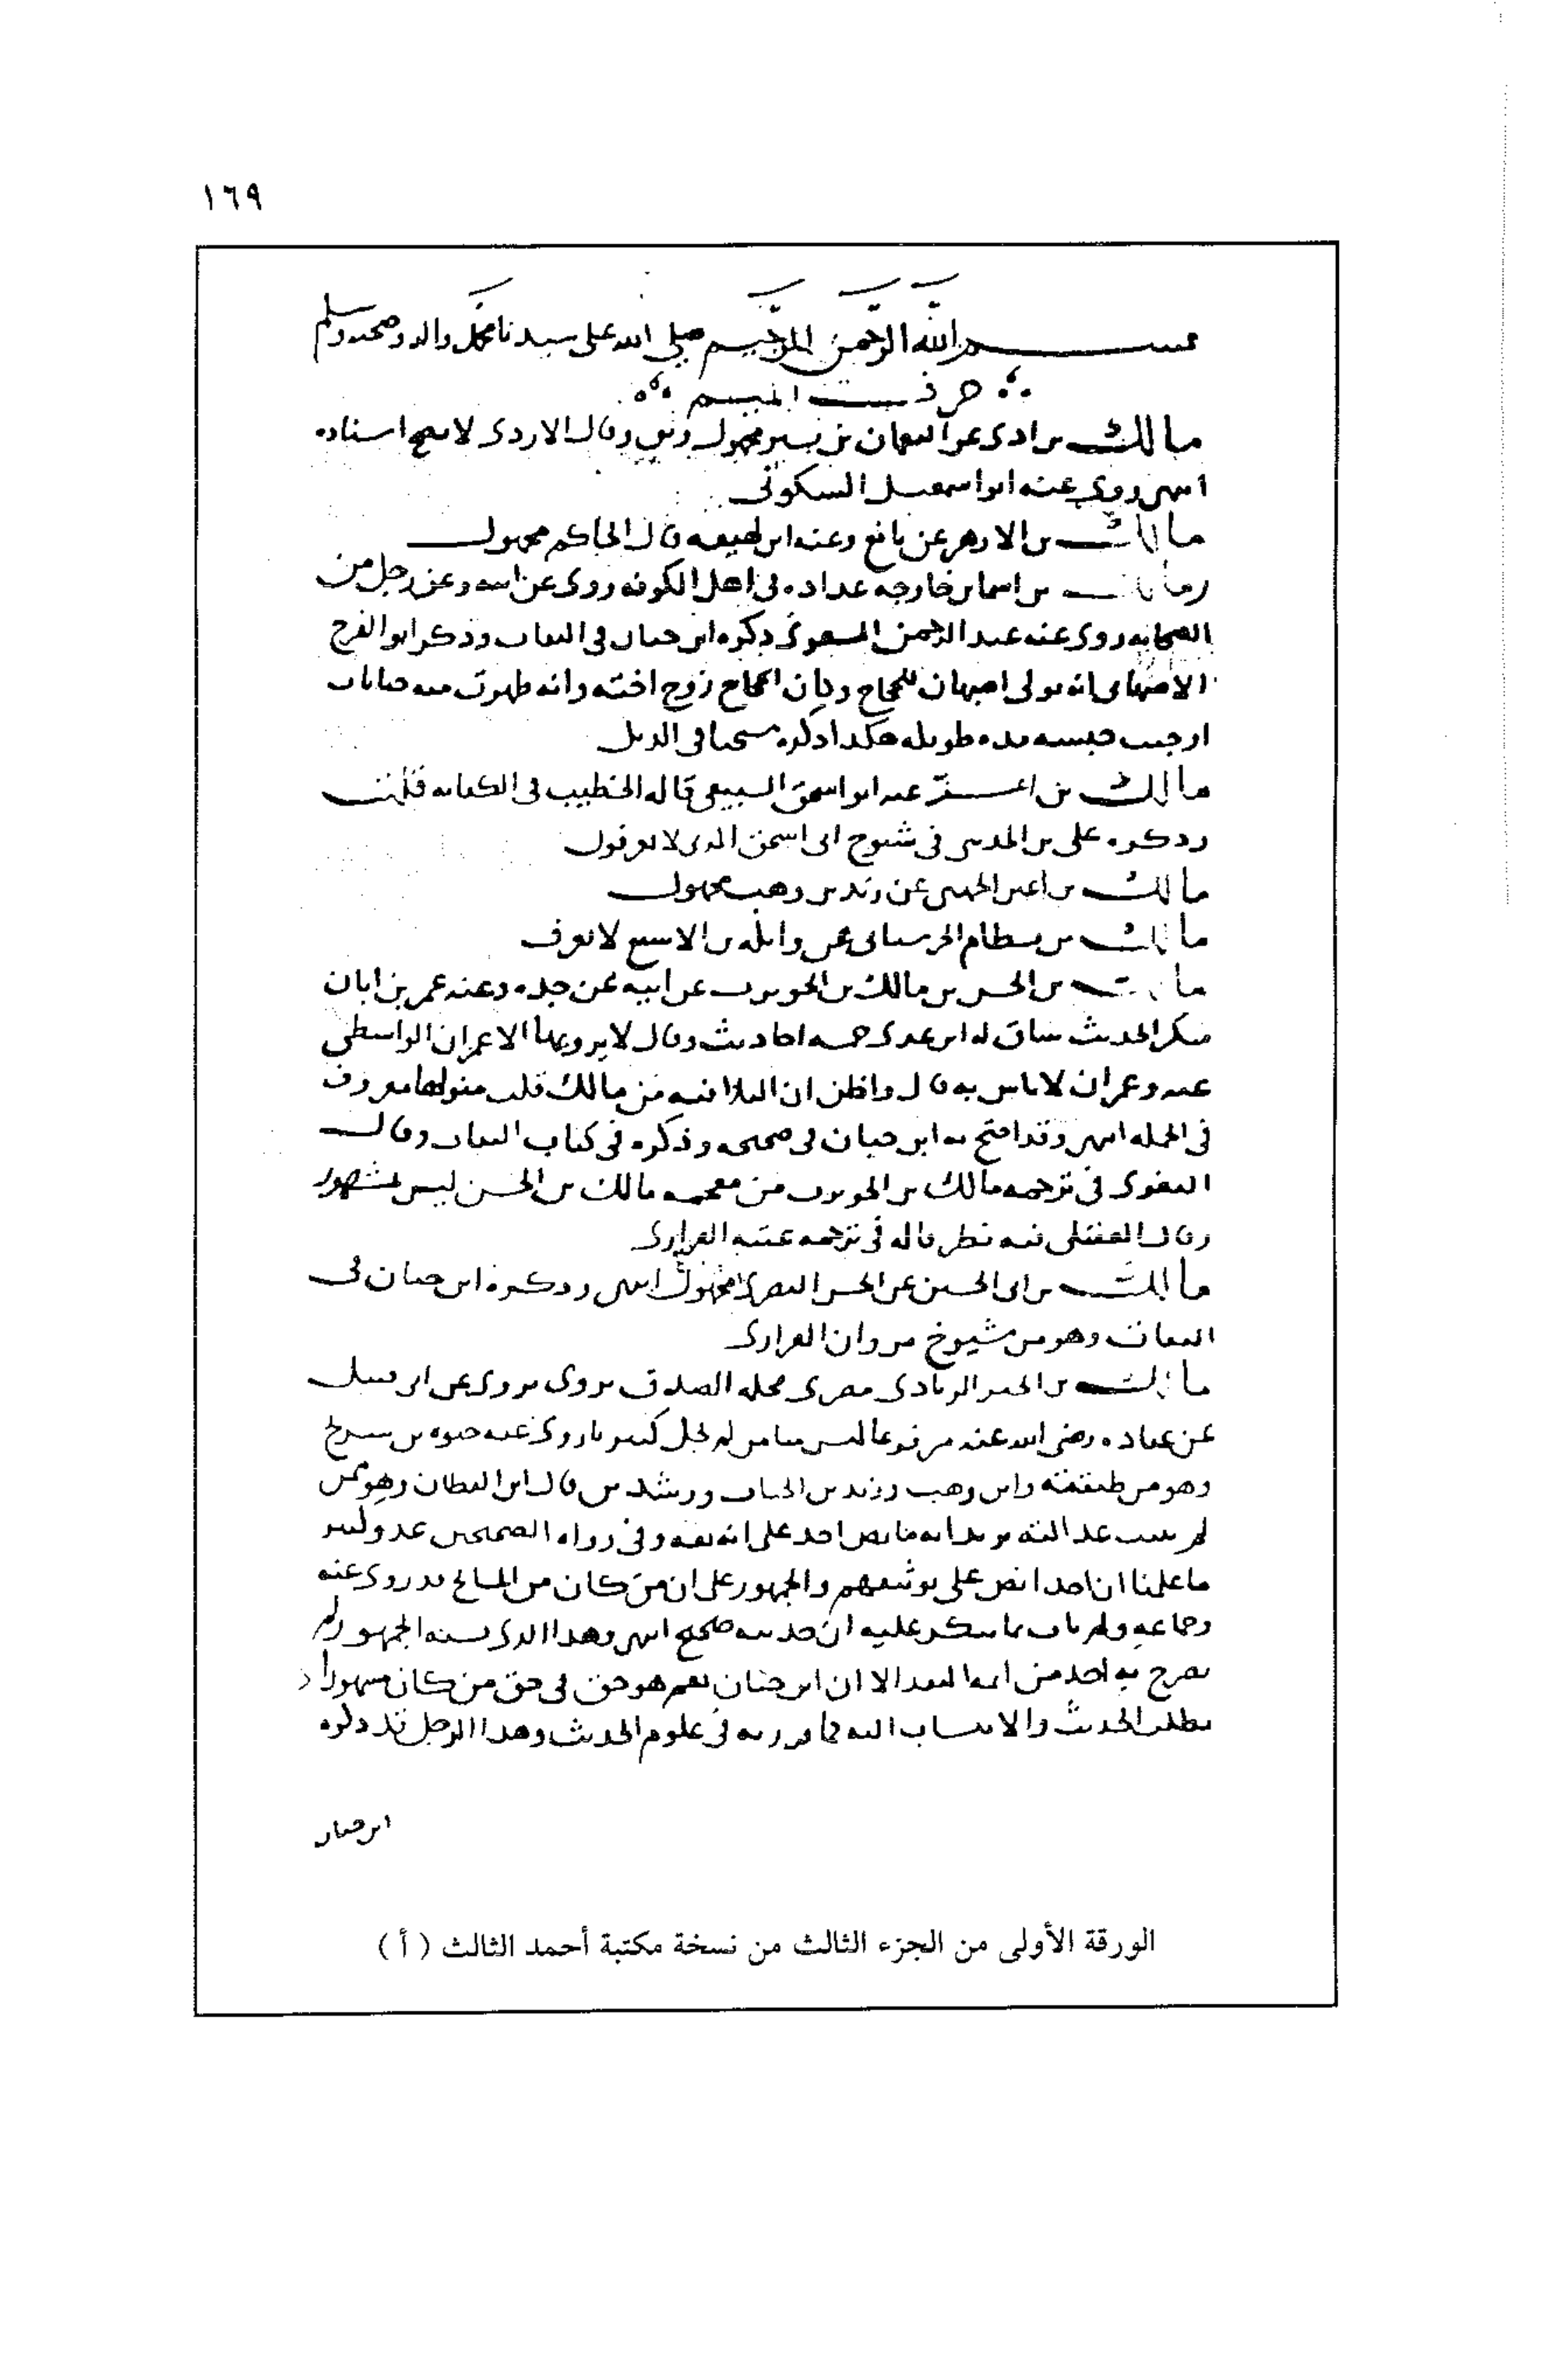 ١٦٩
بسم الله الرحمن الرحيم صلى الله على سيدنا محمد واله وصحبه وسلم
حرف الميم
مالك بن ادى عن النعمان بن بشير مجهول وقال الازدى لا يصح اسناده
انتهى روى عنه ابو اسمعيل السكونى
مالك بن الازهر عن نافع وعنه ابن لهيعة قال الحاكم مجهول
مالك بن اسما بن خارجه عداده فى اهل الكوفه روى عن ابيه وعن رجل من
الصحابه روى عنه عبد الرحمن المسعودى ذكره ابن حبان فى الثقات وذكر ابو الفرج
الاصبهانى انه تولى اصبهان للحجاج وكان الحجاج زوج اخته وانه ظهرت منه خيانات
اوجبت حبسه مده طويله هكذا ذكره شيخنا فى الذيل
مالك بن اعز عنه ابو اسحق السبيعى قاله الخطيب فى الكفايه قلت
وذكره على بن المدينى فى شيوخ ابى اسحق الذى لا يعرفون
مالك بن اعين الجهنى عن زيد بن وهب مجهول
مالك بن بسطام الحرستانى عن واثله بن الاسقع لا يعرف
مالك بن الحسن بن مالك بن الحويرث عن ابيه عن جده وعنه عمر بن ابان
منكر الحديث ساق له ابن عدى خمسه احاديث وقال لا يرويها الا عمران الواسطى
عنه وعمران لا باس به قال واظن ان البلا فيه من مالك قلت متونها معروفه
فى الجمله انتهى وقد احتج به ابن حبان فى صحيحه وذكره فى كتاب الثقات وقال
البغوى فى ترجمه مالك بن الحويرث من معجمه مالك بن الحسن ليس بمشهور
وقال العقيلى فيه نظر قاله فى ترجمه عتبه الفزارى
مالك بن ابى الحسن عن الحسن البصرى مجهول انتهى وذكره ابن حبان فى
الثقات وهو من شيوخ مروان الفزارى
مالك بن الخير الزبادى مصرى محله الصدق يروى عن ابى قبيل
عن عباده رضى الله عنه مرفوعا ليس منا من لم يجل كبيرنا روى عنه حيوه بن شريح
وهو من طبقته وابن وهب وزيد بن الحباب ورشدين قال ابن القطان وهو ممن
لم يثبت عدالته يريد انه ما نص احد على انه ثقه وفى رواه الصحيحين عدد كثير
ما علمنا ان احدا نص على توثيقهم والجمهور على ان من كان من المشايخ قد روى عنه
جماعه ولم يات بما ينكر عليه ان حديثه صحيح انتهى وهذا الذى نسبه للجمهور لم
يصرح به احد من ائمه النقد الا ابن حبان نعم هو حق فى حق من كان مشهورا
بطلب الحديث والانتساب اليه كما قررته فى علوم الحديث وهذا الرجل قد ذكره
ابن حبان
الورقة الأولى من الجزء الثالث من نسخة مكتبة أحمد الثالث ( أ )